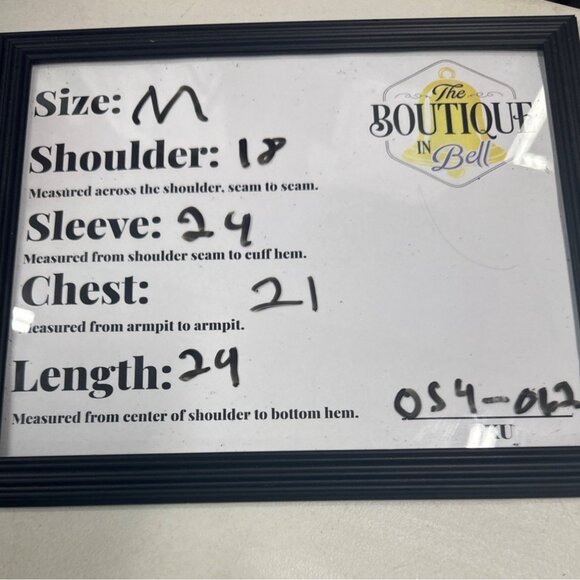 Size: M
The
BOUTIQUE
IN
Bell
Shoulder: 18
Measured across the shoulder, seam to seam.
Sleeve: 24
Measured from shoulder seam to cuff hem.
Chest: 21
Measured from armpit to armpit.
Length: 24
Measured from center of shoulder to bottom hem.
054-062
SKU